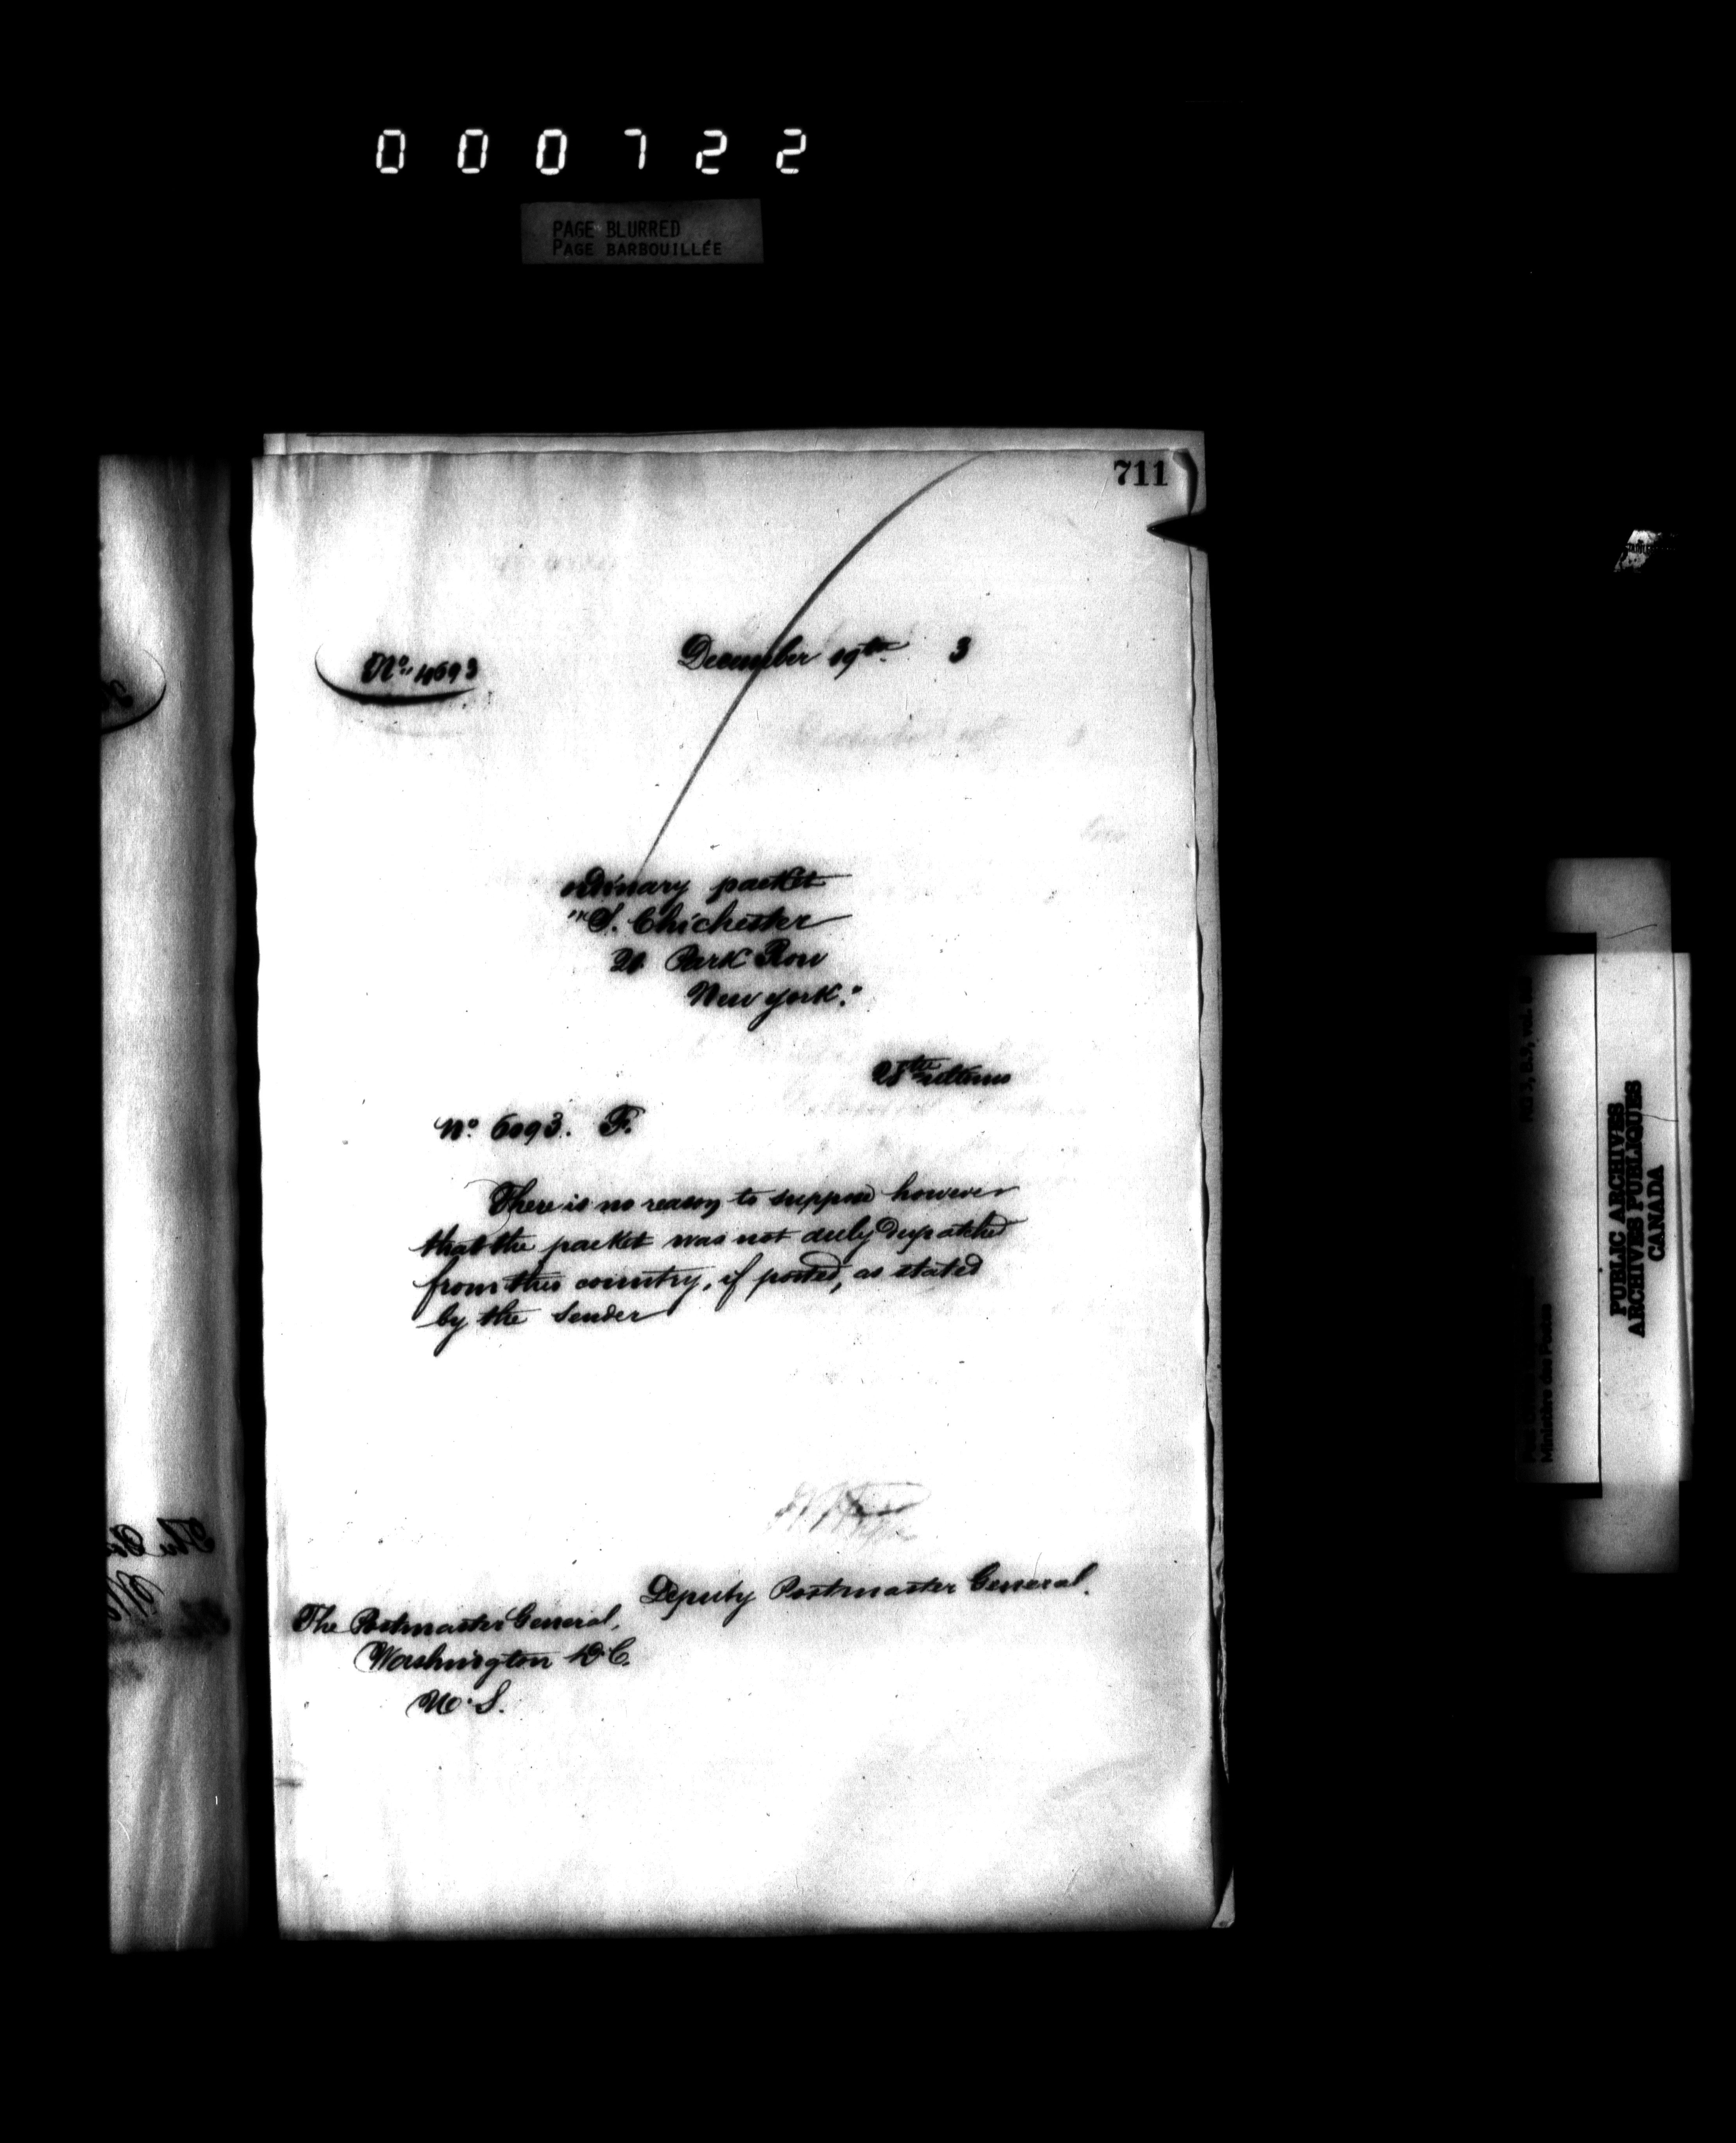 000722
PAGE BLURRED
PAGE BARBOUILLÉE
711
No. 4593
December 19th. 3
ordinary packet
"S. Chichester
20 Park Row
New York."
28th ultimo
No. 6093. F.
There is no reason to suppose however
that the packet was not duly despatched
from this country, if posted, as stated
by the sender
Deputy Postmaster General.
The Postmaster General,
Washington D.C.
U.S.
PUBLIC ARCHIVES
ARCHIVES PUBLIQUES
CANADA
Ministère des Postes